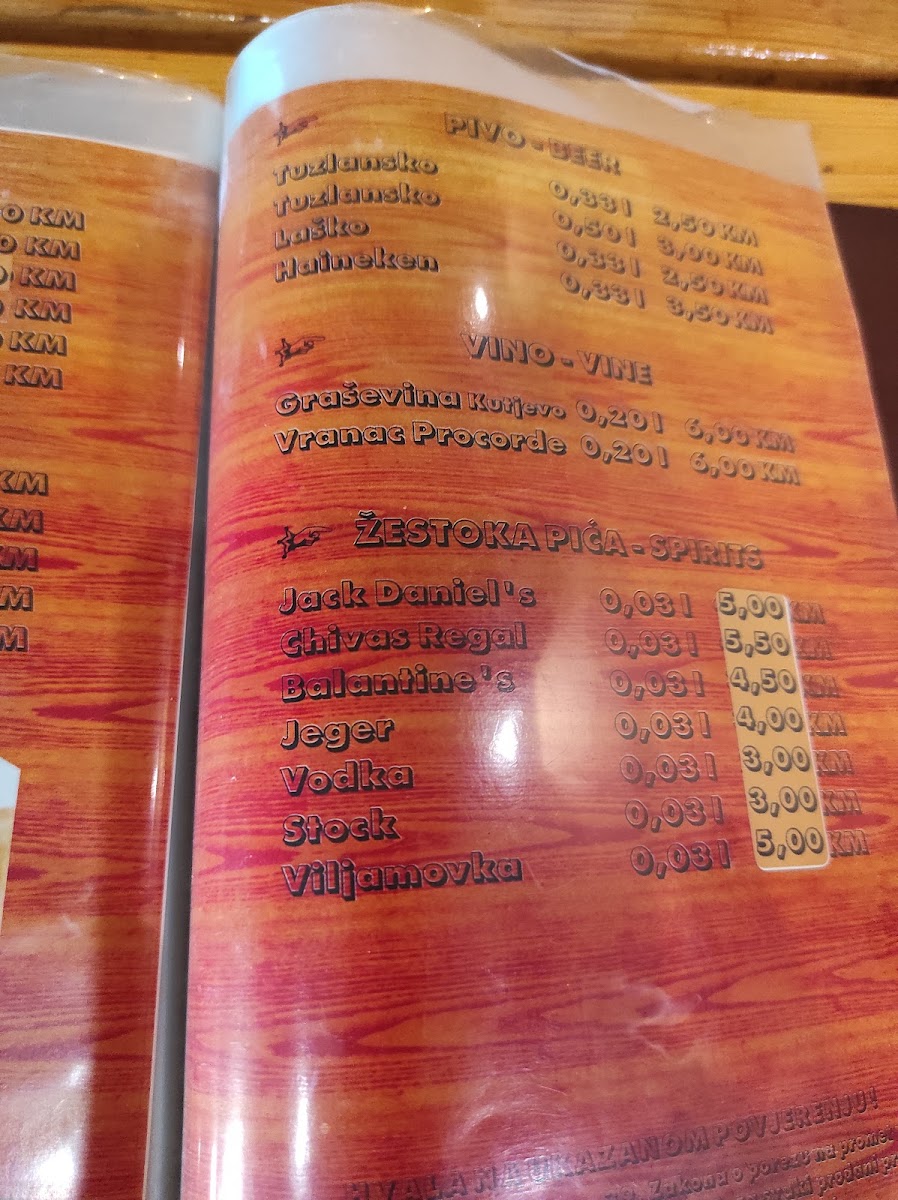 0 KM
0 KM
0 KM
0 KM
0 KM
KM
KM
KM
KM
M
M
PIVO - BEER
Tuzlansko 0,33 l 2,50 KM
Tuzlansko 0,50 l 3,00 KM
Laško 0,33 l 2,50 KM
Haineken 0,33 l 3,50 KM
VINO - VINE
Graševina Kutjevo 0,20 l 6,00 KM
Vranac Procorde 0,20 l 6,00 KM
ŽESTOKA PIĆA - SPIRITS
Jack Daniel's 0,03 l 5,00 KM
Chivas Regal 0,03 l 5,50 KM
Balantine's 0,03 l 4,50 KM
Jeger 0,03 l 4,00 KM
Vodka 0,03 l 3,00 KM
Stock 0,03 l 3,00 KM
Viljamovka 0,03 l 5,00 KM
HVALA NA UKAZANOM POVJERENJU!
Zakona o porezu na promet
prodani